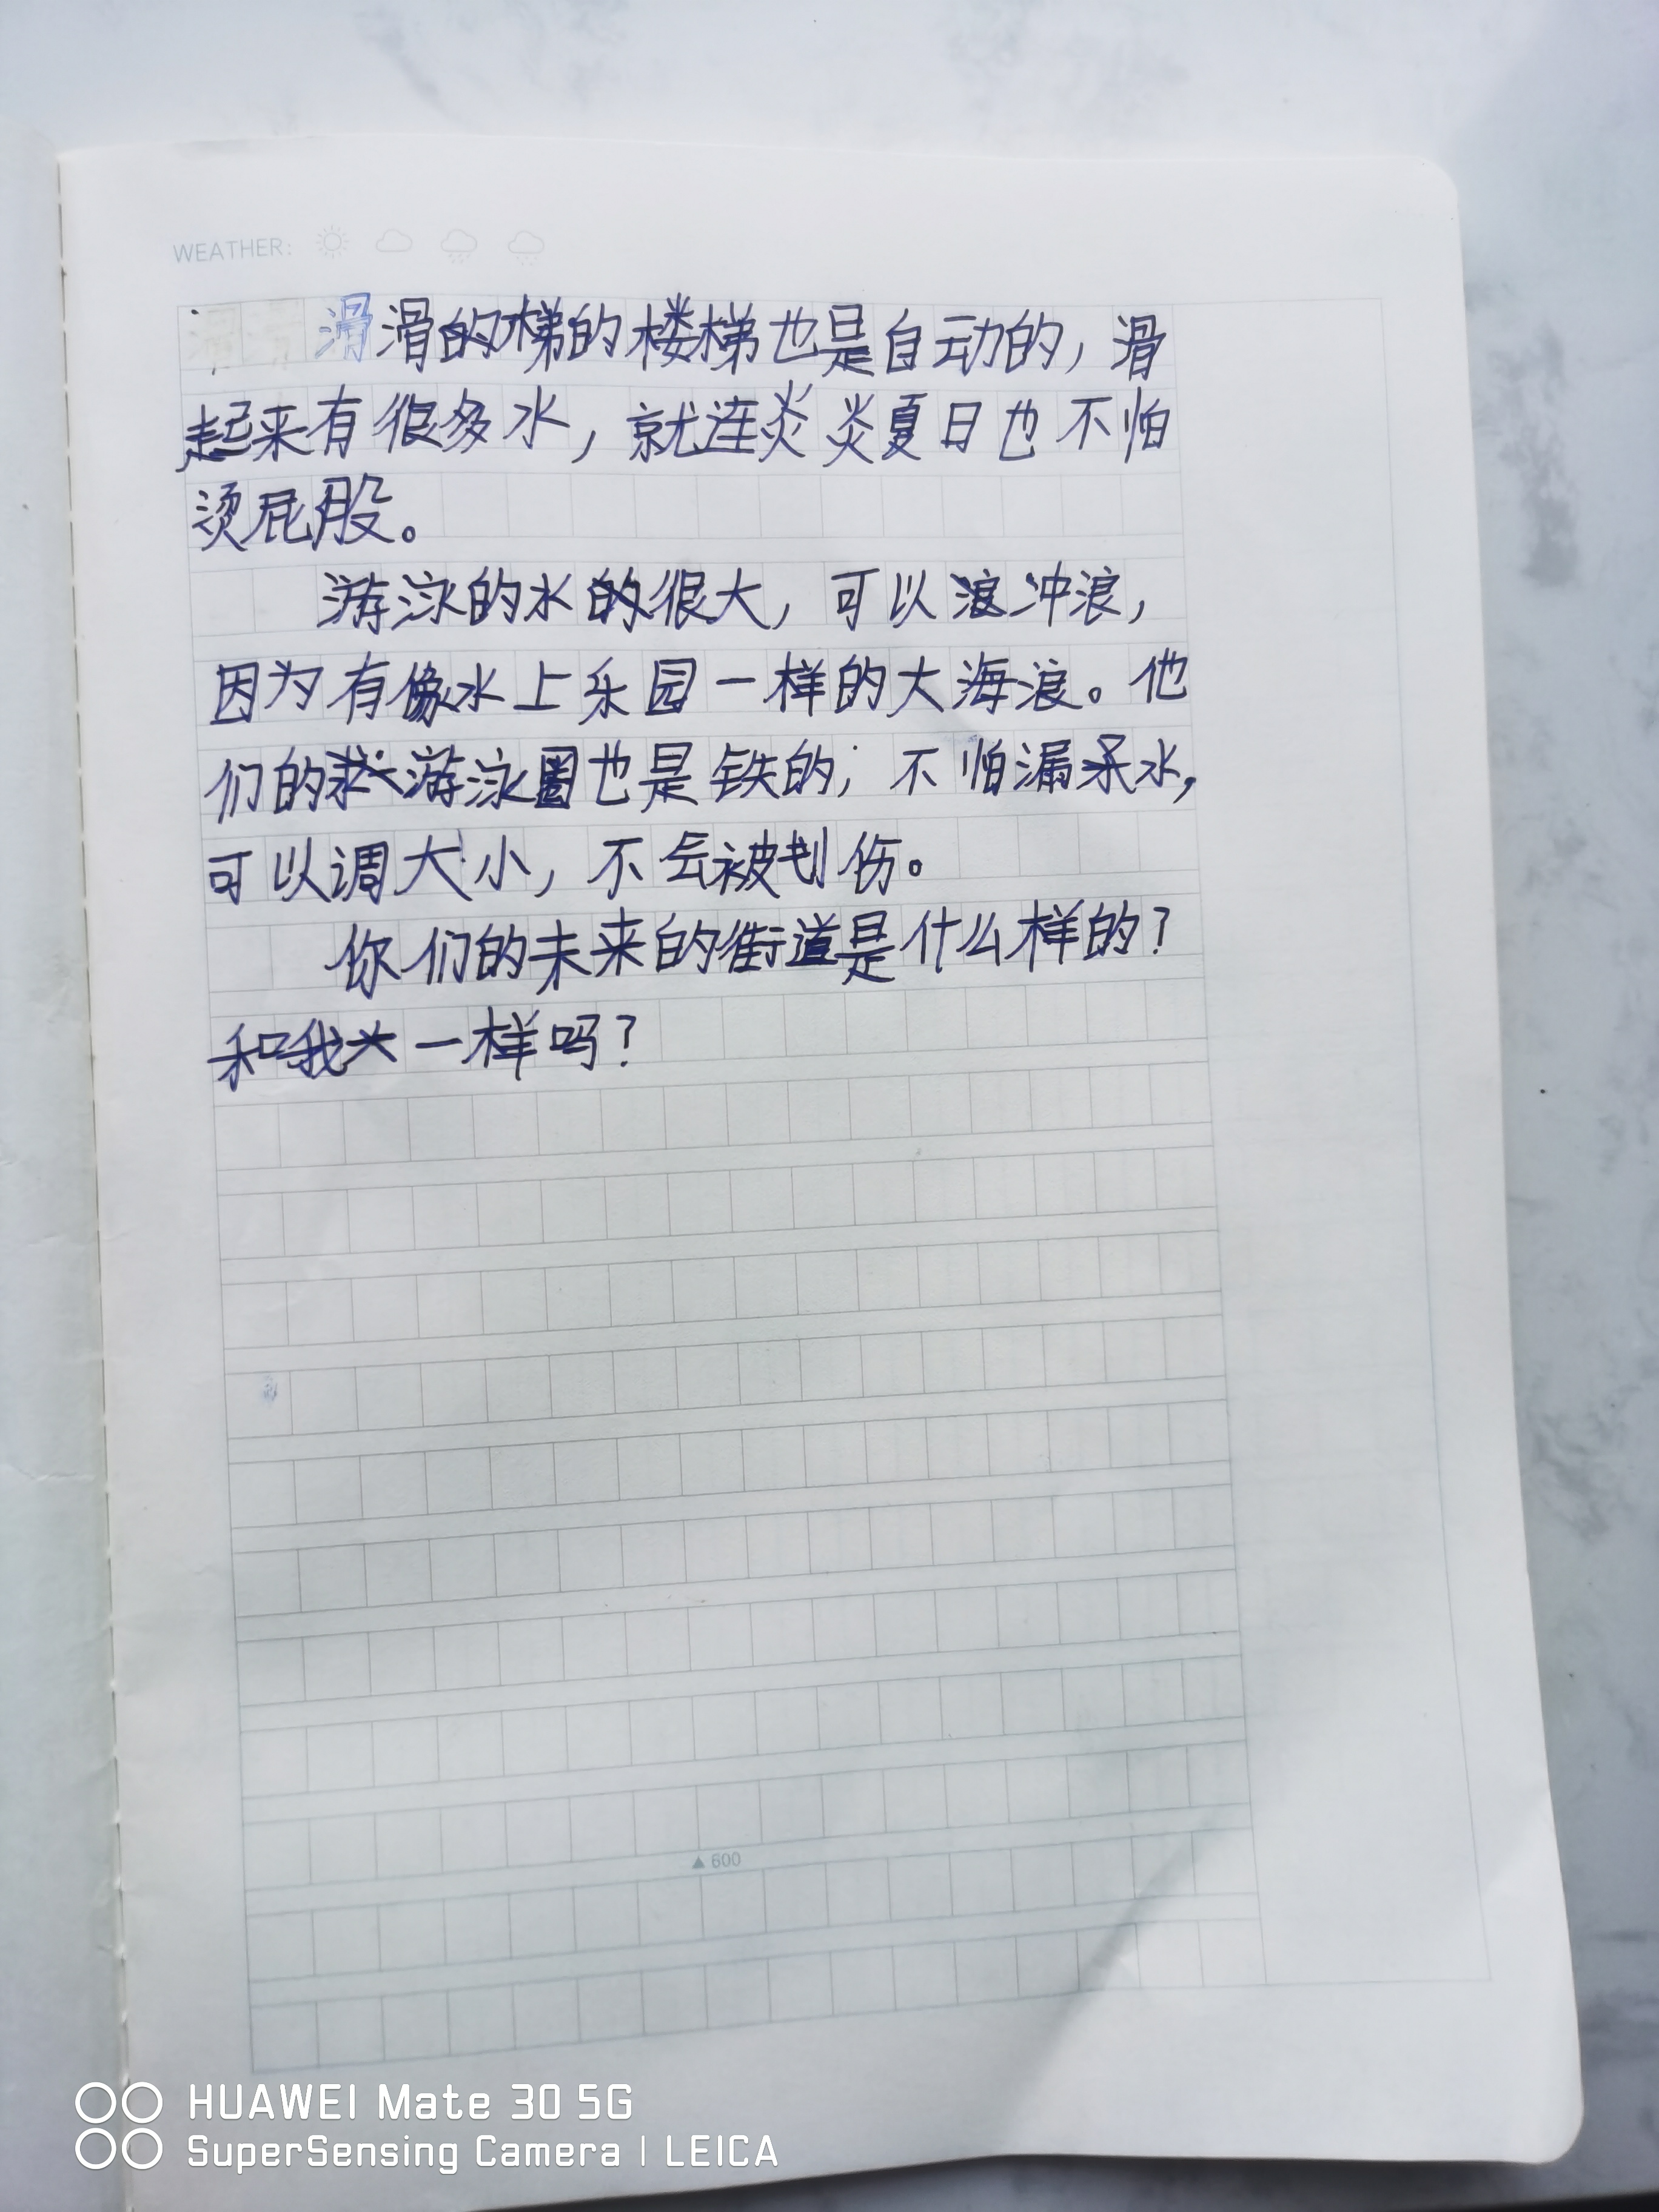 WEATHER:
滑滑的梯的楼梯也是自动的，滑
起来有很多水，就连炎炎夏日也不怕
烫屁股。
游泳的水的很大，可以浪冲浪，
因为有像水上乐园一样的大海浪。他
们的游泳圈也是铁的，不怕漏水，
可以调大小，不会被划伤。
你们的未来的街道是什么样的？
和我一样吗？
▲600
HUAWEI Mate 30 5G
SuperSensing Camera | LEICA